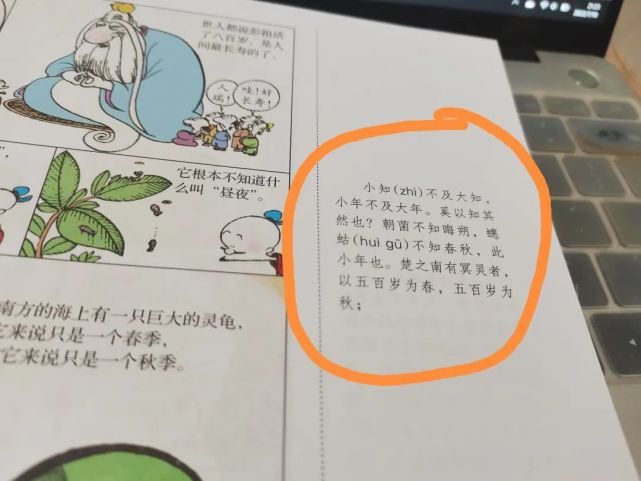 世人都说彭祖活
了八百岁，是人
间最长寿的了。
人
瑞！
哇！好
长寿！
它根本不知道什
么叫“昼夜”。
南方的海上有一只巨大的灵龟，
它来说只是一个春季，
它来说只是一个秋季。
小知(zhì)不及大知，
小年不及大年。奚以知其
然也？朝菌不知晦朔，蟪
蛄(huì gū)不知春秋，此
小年也。楚之南有冥灵者，
以五百岁为春，五百岁为
秋；